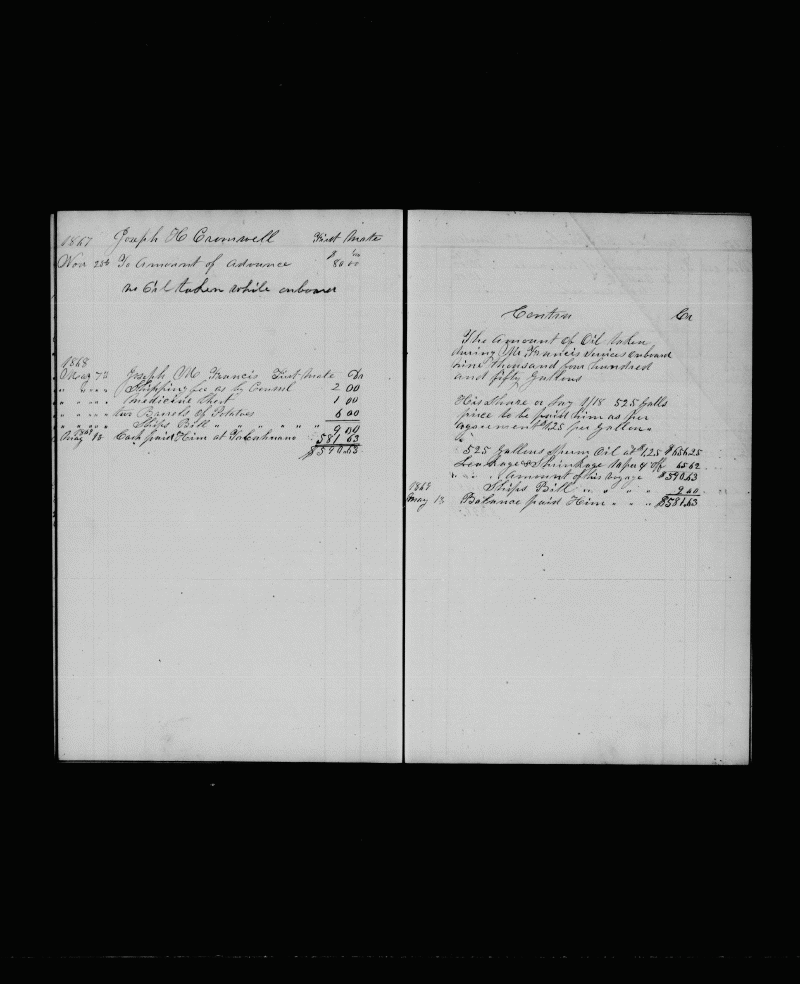 1867 Joseph H Cromwell First Mate
Nov 25th To Amount of Advance $80 00
no Oil taken while onboard
1868
May 7th Joseph M Francis First Mate Dr
" " " " Shipping fee as by Consul 2 00
" " " " medicine Chest 1 00
" " " " two Barrels of Potatoes 6 00
" " " " Ships Bill " " " " " " 9 00
1869
May 13 Cash paid Him at Talcahuano 581 63
$590.63
Contra Cr
The Amount of Oil taken
during Mr Francis Services onboard
nine thousand four hundred
and fifty Gallons
His Share or Lay 1/18 525 Galls
price to be paid him as per
agreement $1.25 per Gallon
525 Gallons Sperm Oil at $1.25 $656.25
Leakage & Shrinkage 10 per ct off 65.62
" " " Amount of this voyage $590.63
Ships Bill " " " " 9 00
1869
May 13 Balance paid Him " " " $581.63